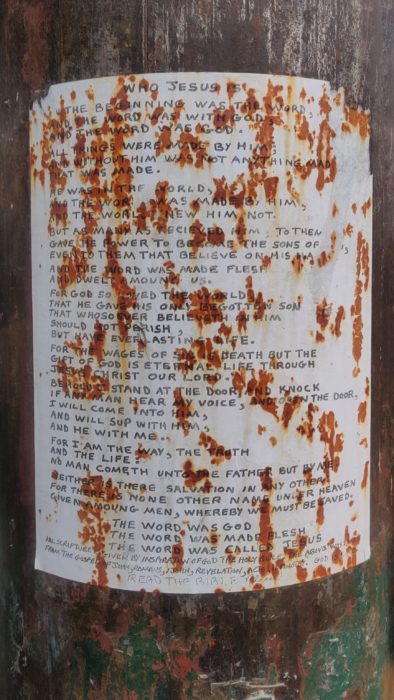 WHO JESUS IS
THE BEGINNING WAS THE WORD,
AND THE WORD WAS WITH GOD,
AND THE WORD WAS GOD.
ALL THINGS WERE MADE BY HIM;
AND WITHOUT HIM WAS NOT ANYTHING MADE
THAT WAS MADE.
HE WAS IN THE WORLD,
AND THE WORLD WAS MADE BY HIM,
AND THE WORLD KNEW HIM NOT.
BUT AS MANY AS RECIEVED HIM, TO THEM
GAVE HE POWER TO BECOME THE SONS OF
EVEN TO THEM THAT BELIEVE ON HIS
AND THE WORD WAS MADE FLESH
AND DWELT AMOUNG US.
FOR GOD SO LOVED THE WORLD
THAT HE GAVE HIS ONLY BEGOTTEN SON
THAT WHOSOEVER BELIEVETH IN HIM
SHOULD NOT PERISH,
BUT HAVE EVERLASTING LIFE.
FOR THE WAGES OF SIN IS DEATH BUT THE
GIFT OF GOD IS ETERNAL LIFE THROUGH
JESUS CHRIST OUR LORD.
BEHOLD I STAND AT THE DOOR, AND KNOCK
IF ANY MAN HEAR MY VOICE, AND OPEN THE DOOR,
I WILL COME INTO HIM,
AND WILL SUP WITH HIM,
AND HE WITH ME.
FOR I AM THE WAY, THE TRUTH
AND THE LIFE:
NO MAN COMETH UNTO THE FATHER BUT BY ME
NEITHER IS THERE SALVATION IN ANY OTHER
FOR THERE IS NONE OTHER NAME UNDER HEAVEN
GIVEN AMOUNG MEN, WHEREBY WE MUST BE SAVED.
THE WORD WAS GOD
THE WORD WAS MADE FLESH
THE WORD WAS CALLED JESUS
ALL SCRIPTURE IS GIVEN BY INSPIRATION OF GOD THE HOLY BIBLE
FROM THE GOSPEL OF JOHN, ROMANS, 1 JOHN, REVELATION, ACTS
READ THE BIBLE